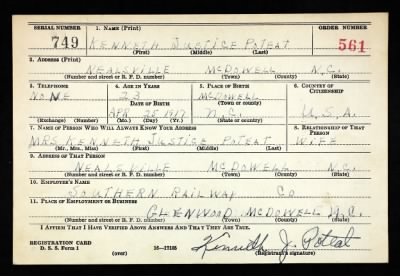 SERIAL NUMBER 1. NAME (Print) ORDER NUMBER
749 KENNETH JUSTICE POTEAT 561
(First) (Middle) (Last)
2. ADDRESS (Print)
NEALSVILLE McDOWELL N.C.
(Number and street or R. F. D. number) (Town) (County) (State)
3. TELEPHONE 4. AGE IN YEARS 5. PLACE OF BIRTH 6. COUNTRY OF CITIZENSHIP
NONE 23 McDOWELL
DATE OF BIRTH (Town or county)
APR 28 1917 N.C. U.S.A.
(Exchange) (Number) (Mo.) (Day) (Yr.) (State or country)
7. NAME OF PERSON WHO WILL ALWAYS KNOW YOUR ADDRESS 8. RELATIONSHIP OF THAT PERSON
MRS KENNETH JUSTICE POTEAT WIFE
(Mr., Mrs., Miss) (First) (Middle) (Last)
9. ADDRESS OF THAT PERSON
NEALSVILLE McDOWELL N.C.
(Number and street or R. F. D. number) (Town) (County) (State)
10. EMPLOYER'S NAME
SOUTHERN RAILWAY CO
11. PLACE OF EMPLOYMENT OR BUSINESS
GLENWOOD McDOWELL N.C.
(Number and street or R. F. D. number) (Town) (County) (State)
I AFFIRM THAT I HAVE VERIFIED ABOVE ANSWERS AND THAT THEY ARE TRUE.
REGISTRATION CARD
D. S. S. Form 1 16—17105 Kenneth J. Poteat
(over) (Registrant's signature)